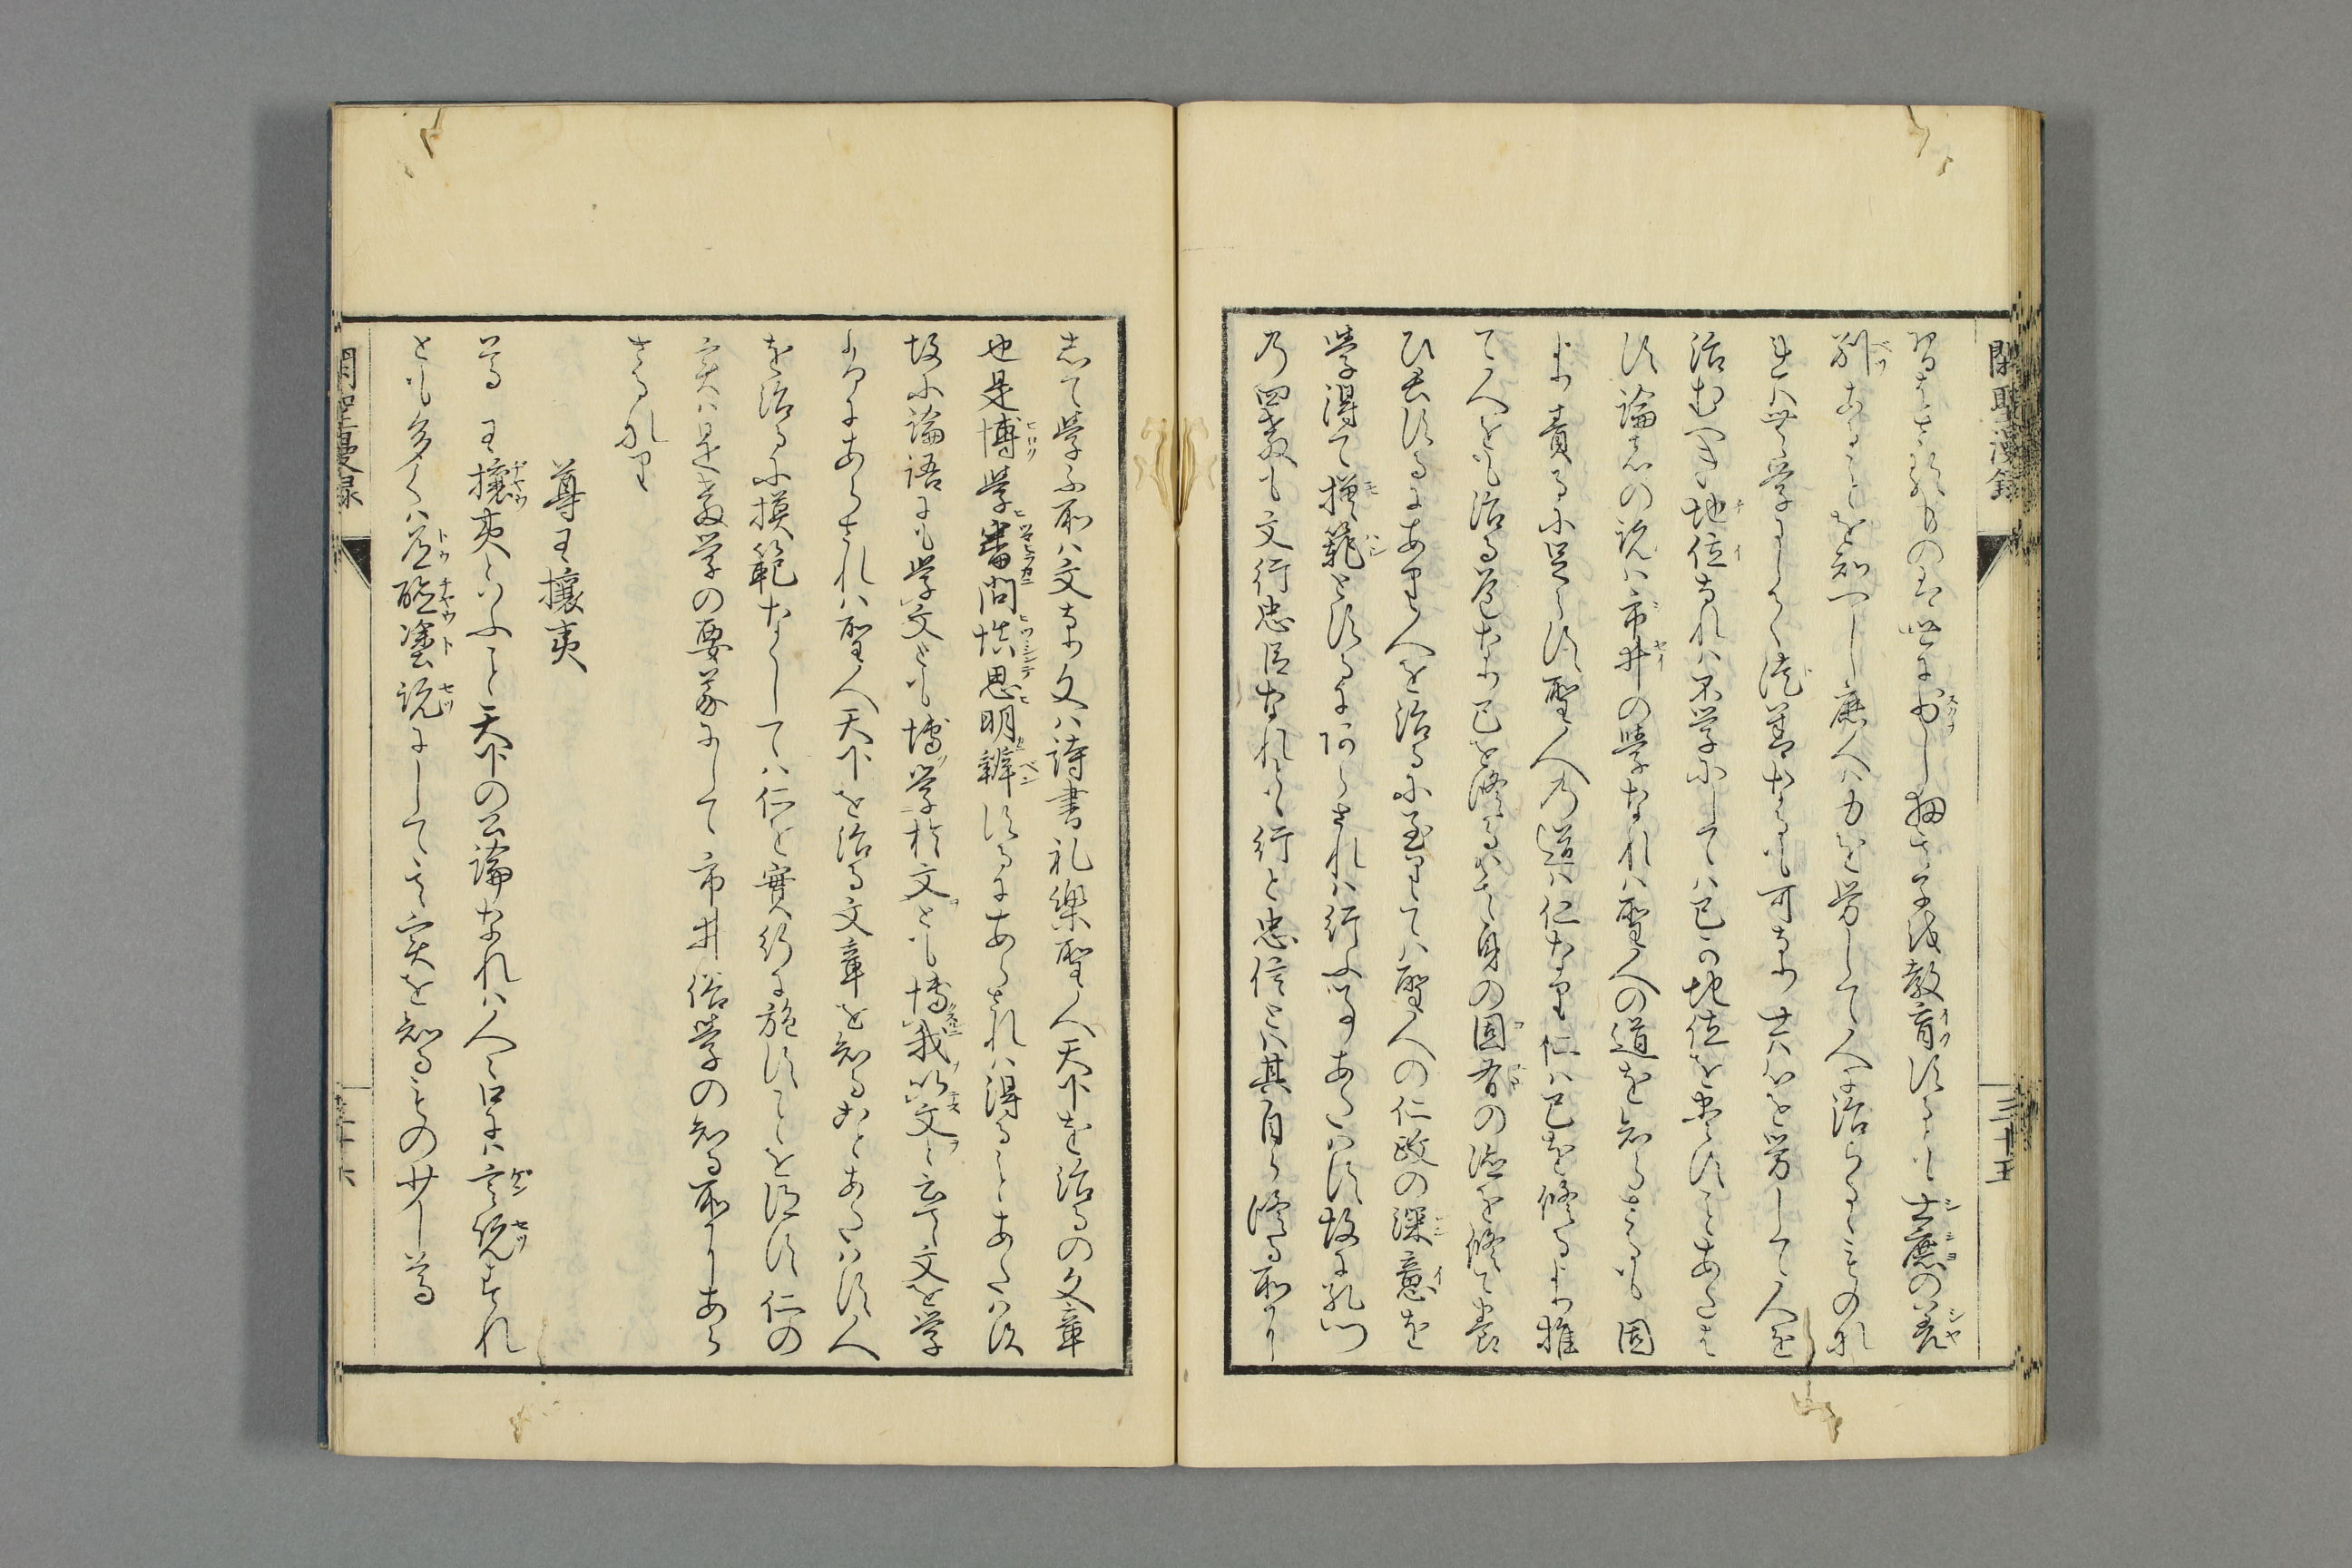 閑聖漫録
三十五
別あることを知へし庶人ハ力を労して人に治らるゝものな
れハ無学にしてハ徒善なるも可なり士ハ心を労して人を
治むへき地位なれハ不学にしてハ己の地位を尽すことあたは
す論者の説ハ市井の学なれハ聖人の道を知らさるも固
より責るに足らす聖人の道ハ仁なり仁ハ己を修るより推
て人をも治る道なり己を修るハ身の固有の徳を修て養
ひ長するにあり人を治るに至りてハ聖人の仁政の深意を
学得て模範とするにあらされハ行ふ事あたハす故に孔門
乃四教も文行忠信なれとも行と忠信とハ其自ら修る所にし
志て学ふ所ハ文なり文ハ詩書礼楽聖人天下を治るの文章
也是博学審問慎思明辨するにあらされハ得ることあたハす
故に論語にも学文とも博学於文とも博我以文と云て文を学
ふにあらされハ聖人天下を治る文章を知ることあたハす人
を治るに模範なくしてハ仁を実行に施すことを得す仁の
実ハ是教学の要義にして市井俗学の知る所にあら
さるなり
尊王攘夷
尊王攘夷といふこと天下の公論なれハ人々口にハ言説すれ
とも多くハ道聴塗説にして其実を知るもの少し尊
閑聖漫録
三十六